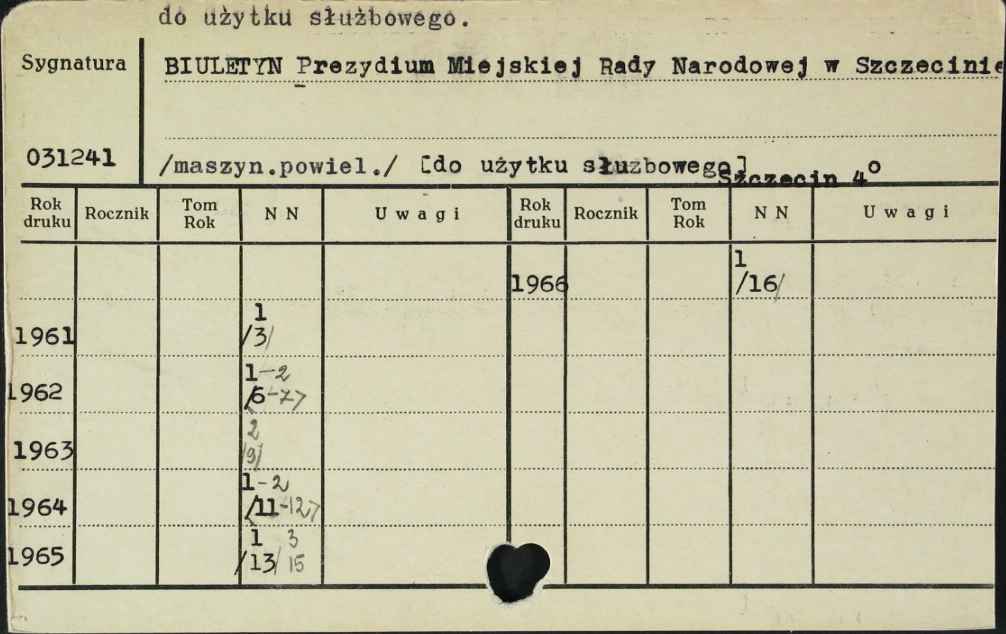 do użytku służbowego.
Sygnatura
BIULETYN Prezydium Miejskiej Rady Narodowej w Szczecinie
031241
/maszyn.powiel./ [do użytku służbowego]
Szczecin 4°
Rok druku Rocznik Tom Rok N N Uwagi Rok druku Rocznik Tom Rok N N Uwagi
1966 1 /16/
1961 1 /3/
1962 1-2 /6-7/
1963 2 /9/
1964 1-2 /11-12/
1965 1 3 /13/ 15